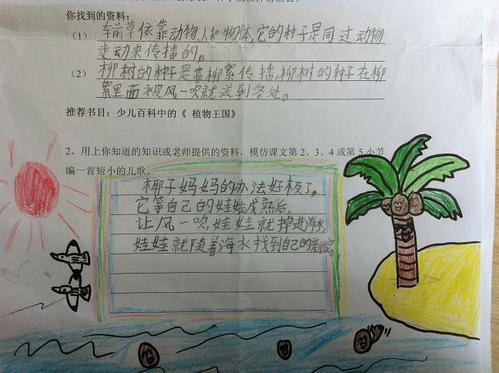 你找到的资料：
（1） 车前草依靠动物、人和物体，它的种子是同过动物
走动来传播的。
（2） 柳树的种子是靠柳絮传播，柳树的种子在柳
絮里面被风一吹就送到各处。
推荐书目：少儿百科中的《 植物王国》
2、用上你知道的知识或老师提供的资料，模仿课文第 2、3、4 或第 5 小节
编一首短小的儿歌。
椰子妈妈的办法好极了，
它等自己的娃娃成熟后，
让风一吹，娃娃就掉进海水，
娃娃就随着海水找到自己的